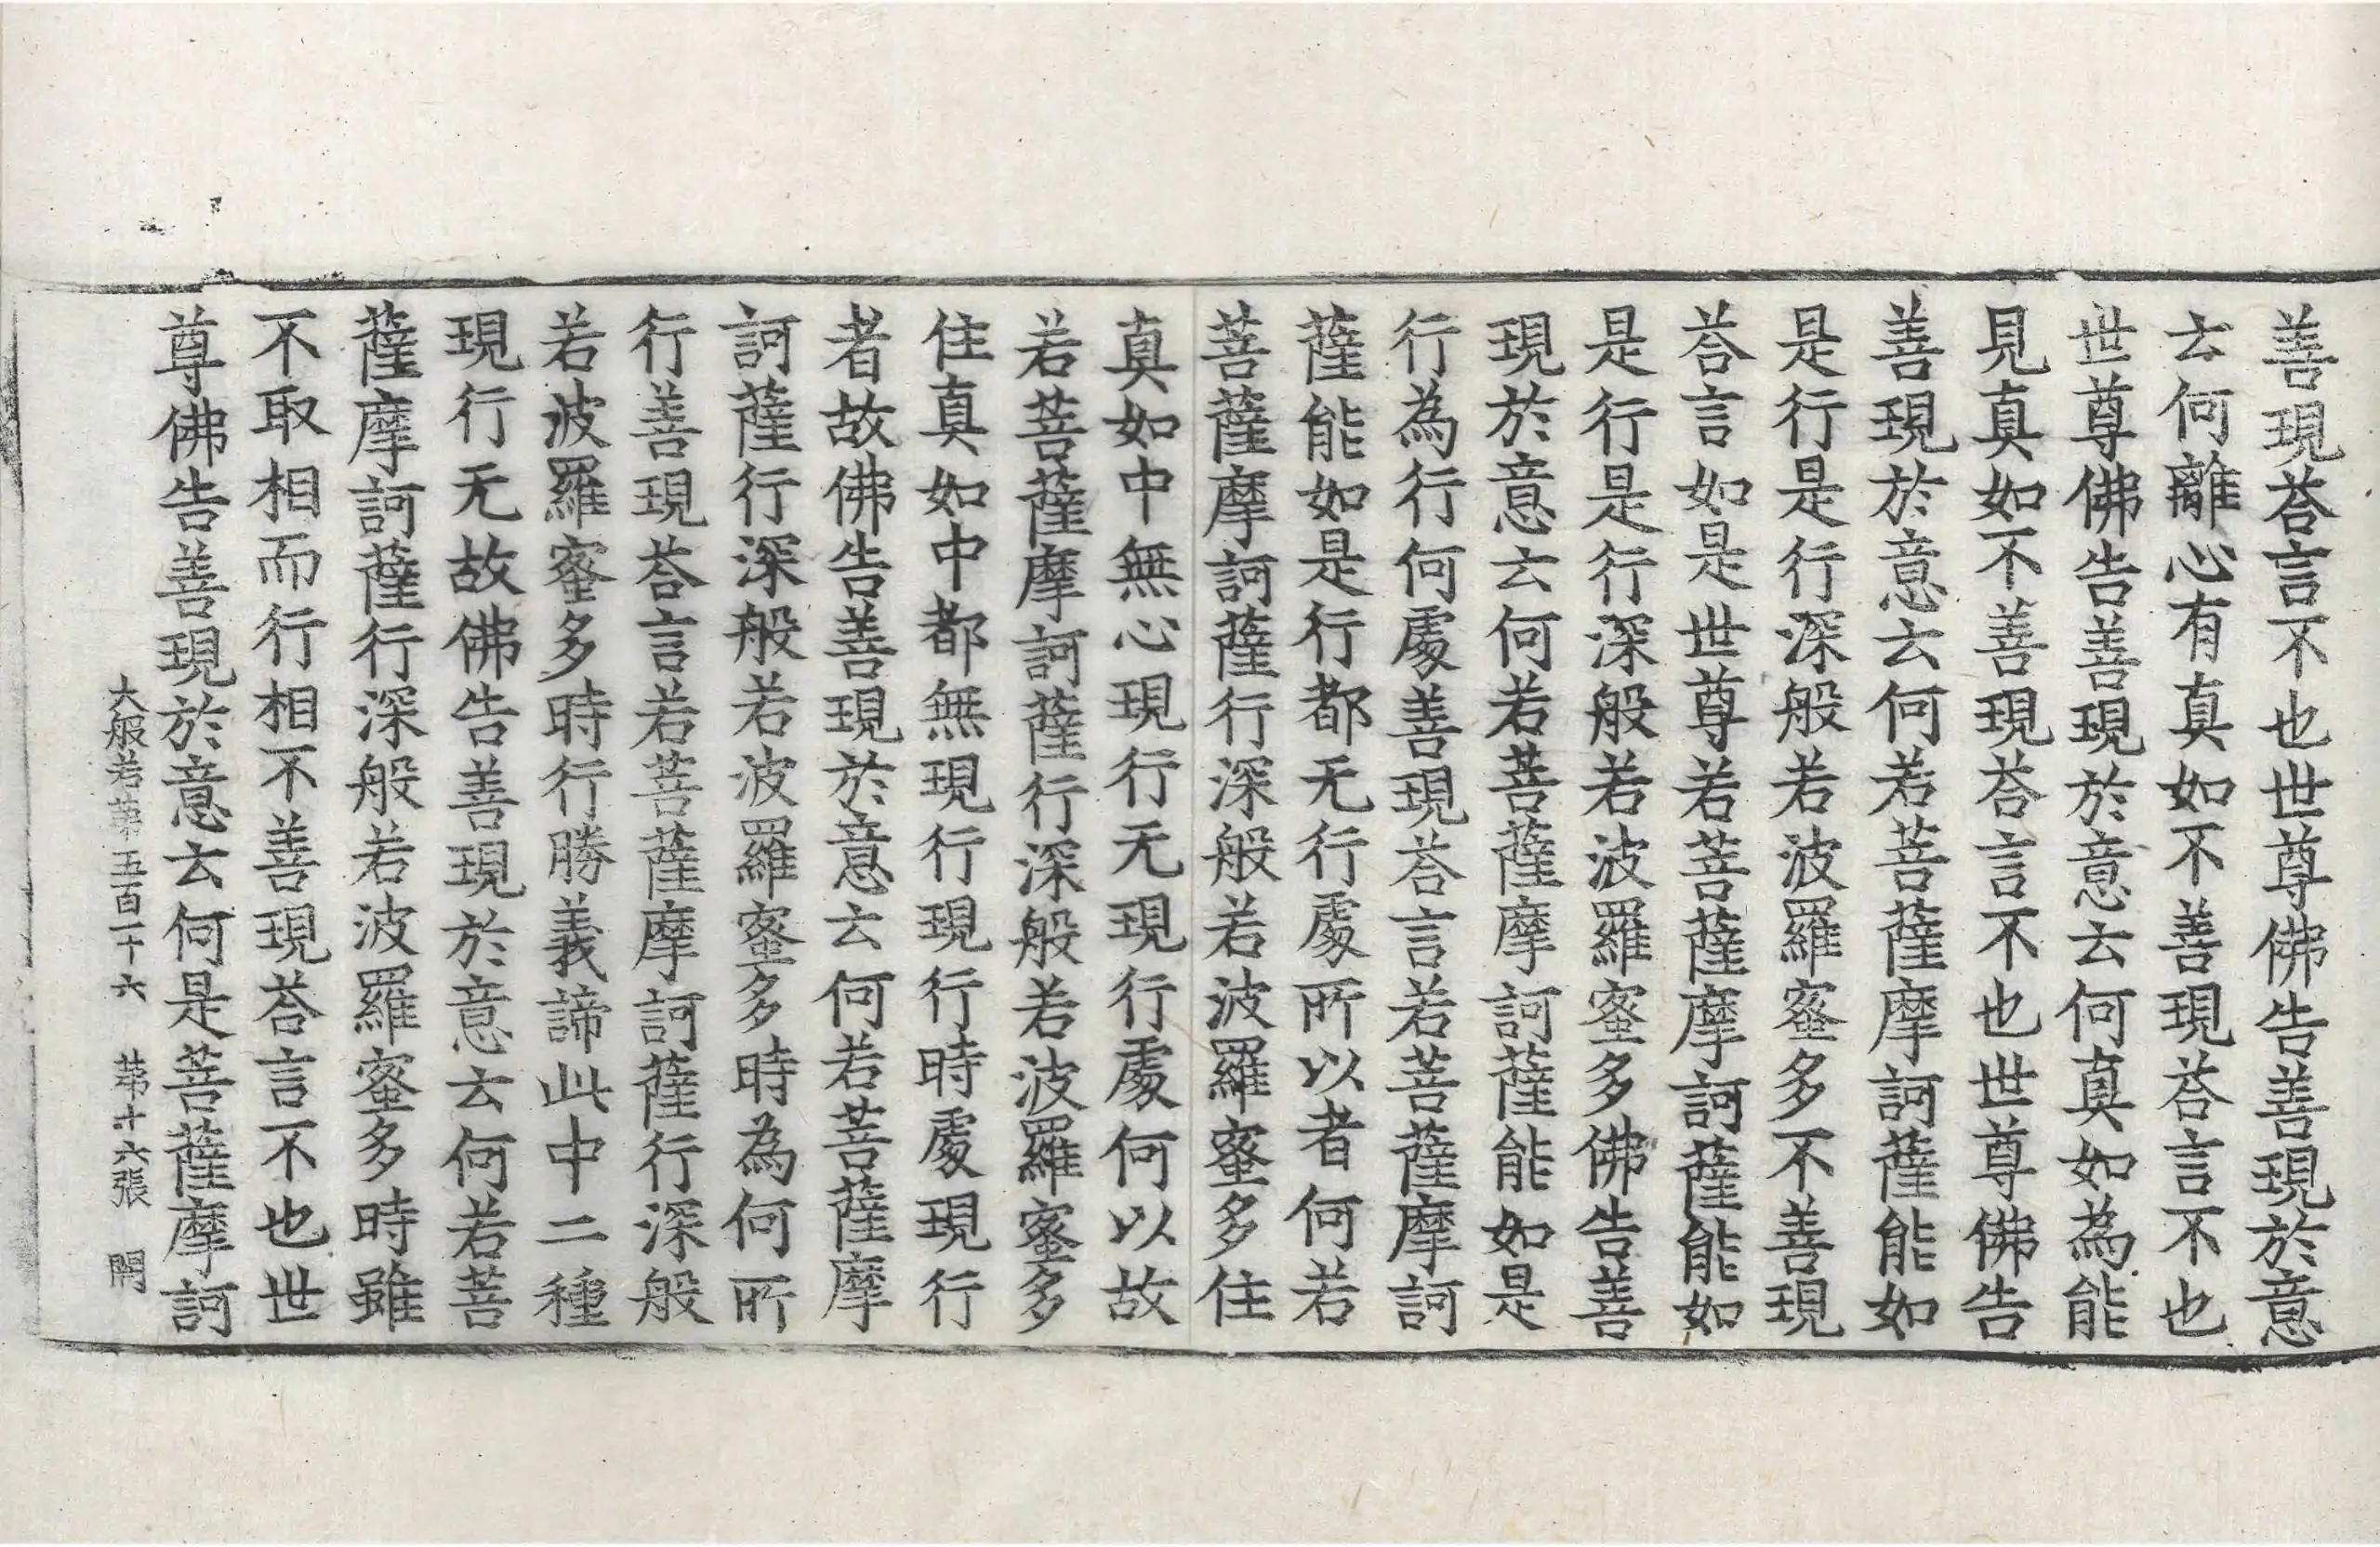 善現荅言不也世尊佛告善現於意
云何離心有真如不善現荅言不也
世尊佛告善現於意云何真如為能
見真如不善現荅言不也世尊佛告
善現於意云何若菩薩摩訶薩能如
是行是行深般若波羅蜜多不善現
荅言如是世尊若菩薩摩訶薩能如
是行是行深般若波羅蜜多佛告善
現於意云何若菩薩摩訶薩能如是
行為行何處善現荅言若菩薩摩訶
薩能如是行都无行處所以者何若
菩薩摩訶薩行深般若波羅蜜多住
真如中無心現行无現行處何以故
若菩薩摩訶薩行深般若波羅蜜多
住真如中都無現行現行時處現行
者故佛告善現於意云何若菩薩摩
訶薩行深般若波羅蜜多時為何所
行善現荅言若菩薩摩訶薩行深般
若波羅蜜多時行勝義諦此中二種
現行无故佛告善現於意云何若菩
薩摩訶薩行深般若波羅蜜多時雖
不取相而行相不善現荅言不也世
尊佛告善現於意云何是菩薩摩訶
大般若第五百一十六 第十六張 閏